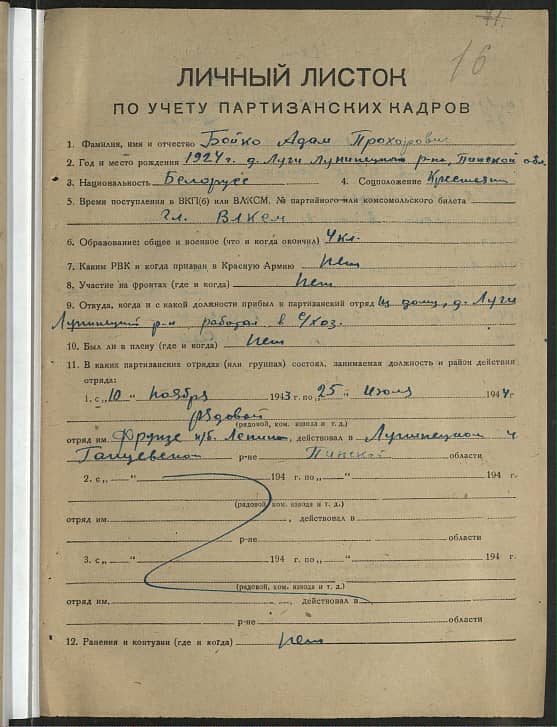 71.
16
ЛИЧНЫЙ ЛИСТОК
ПО УЧЕТУ ПАРТИЗАНСКИХ КАДРОВ
1. Фамилия, имя и отчество Бойко Адам Прохорович
2. Год и место рождения 1924 г. д. Луги Лунинецкого р-на, Пинской обл.
3. Национальность Белорус 4. Соцположение Крестьянин
5. Время поступления в ВКП(б) или ВЛКСМ, № партийного или комсомольского билета
Чл. ВЛКСМ
6. Образование: общее и военное (что и когда окончил) 4 кл.
7. Каким РВК и когда призван в Красную Армию нет
8. Участие на фронтах (где и когда) нет
9. Откуда, когда и с какой должности прибыл в партизанский отряд из дому, д. Луги
Лунинецкий р-н работал в с/хоз.
10. Был ли в плену (где и когда) нет
11. В каких партизанских отрядах (или группах) состоял, занимаемая должность и район действия
отряда:
1. с „10 “ ноября 1943 г. по „25 “ июля 1944 г.
рядовой
(рядовой, ком. взвода и т. д.)
отряд им. Фрунзе п/б. Ленина, действовал в Лунинецком и
Ганцевском р-не Пинской области
2. с „ “ 194 г. по „ “ 194 г.
(рядовой, ком. взвода и т. д.)
отряд им. , действовал в
р-не области
3. с „ “ 194 г. по „ “ 194 г.
(рядовой, ком. взвода и т. д.)
отряд им. , действовал в
р-не области
12. Ранения и контузии (где и когда) нет